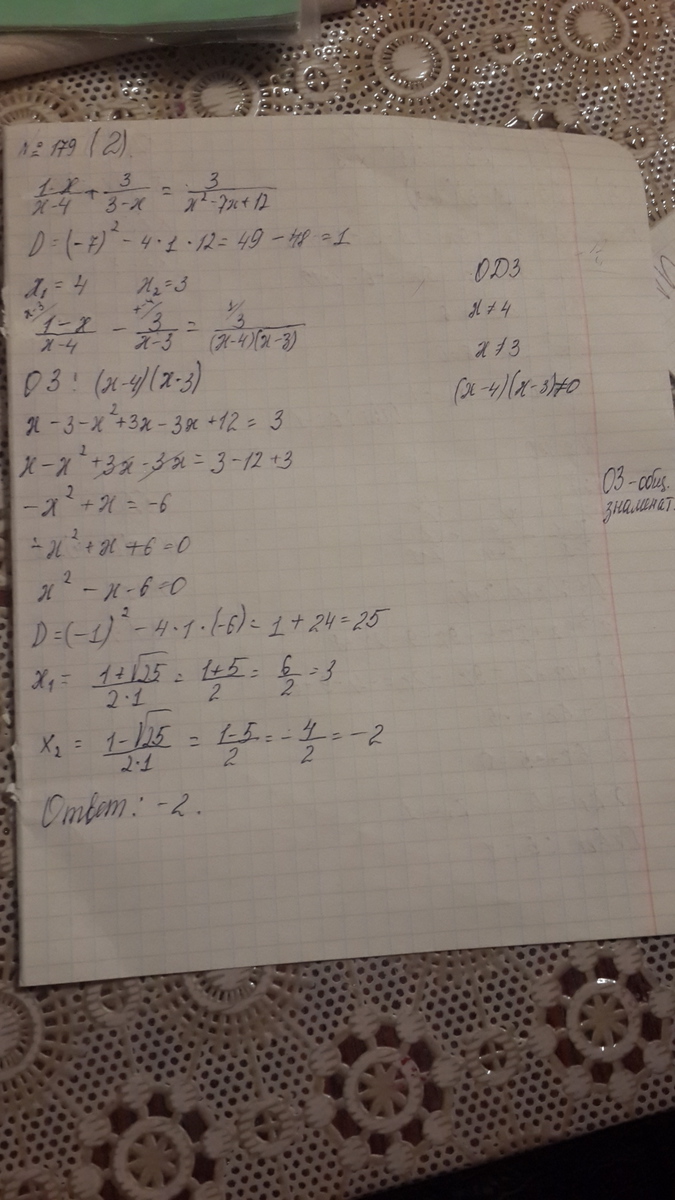 № 179 (2).
1-x/x-4 + 3/3-x = 3/x²-7x+12
D = (-7)² - 4·1·12 = 49 - 48 = 1
x₁ = 4 x₂ = 3
x-3/ x-4/ 1/
1-x/x-4 - 3/x-3 = 3/(x-4)(x-3)
ОЗ: (x-4)(x-3)
x - 3 - x² + 3x - 3x + 12 = 3
x - x² + 3x - 3x = 3 - 12 + 3
-x² + x = -6
-x² + x + 6 = 0
x² - x - 6 = 0
D = (-1)² - 4·1·(-6) = 1 + 24 = 25
x₁ = 1+√25/2·1 = 1+5/2 = 6/2 = 3
x₂ = 1-√25/2·1 = 1-5/2 = -4/2 = -2
Ответ: -2.
ОДЗ
x ≠ 4
x ≠ 3
(x-4)(x-3)≠0
ОЗ - общ.
знаменат.